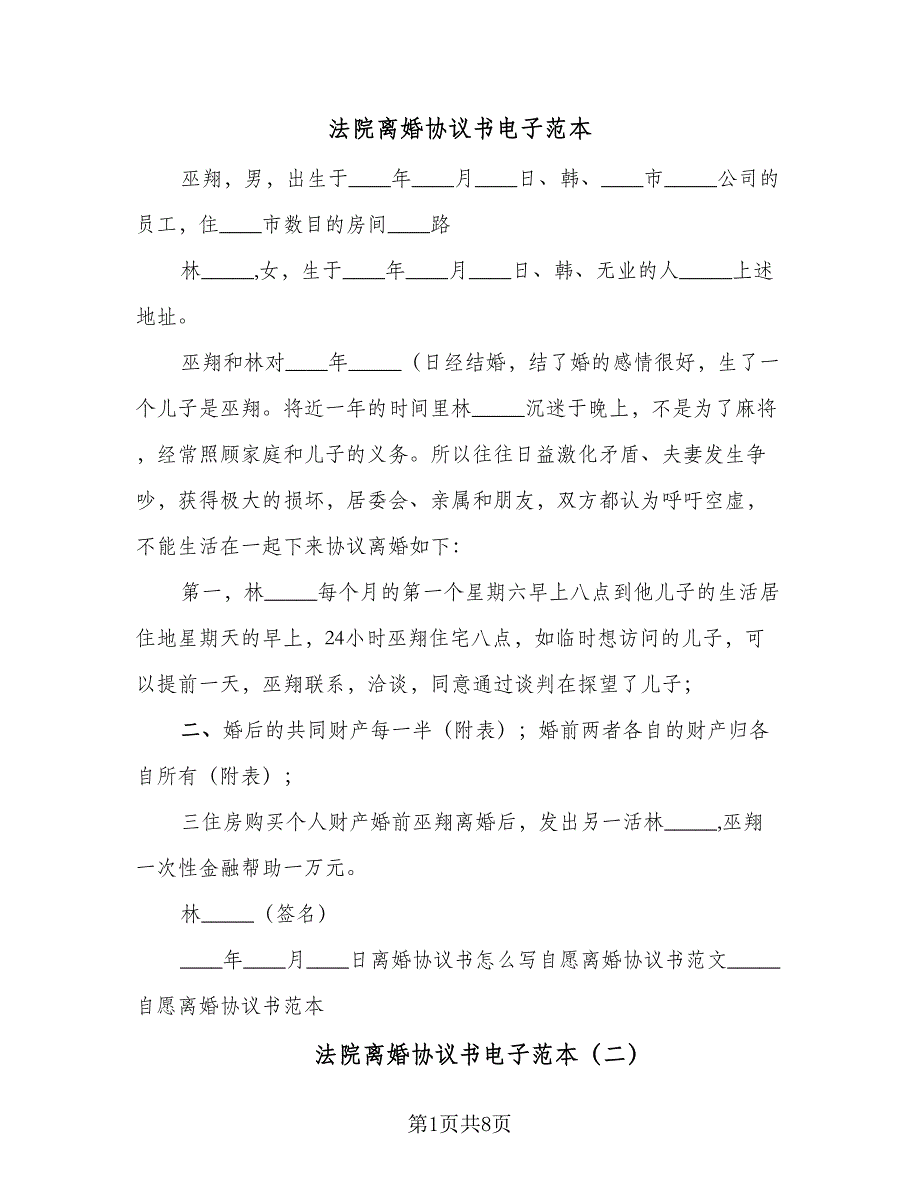 法院离婚协议书电子范本
巫翔，男，出生于____年____月____日、韩、____市_____公司的
员工，住____市数目的房间____路
林_____,女，生于____年____月____日、韩、无业的人_____上述
地址。
巫翔和林对____年_____（日经结婚，结了婚的感情很好，生了一
个儿子是巫翔。将近一年的时间里林_____沉迷于晚上，不是为了麻将
，经常照顾家庭和儿子的义务。所以往往日益激化矛盾、夫妻发生争
吵，获得极大的损坏，居委会、亲属和朋友，双方都认为呼吁空虚，
不能生活在一起下来协议离婚如下：
第一，林_____每个月的第一个星期六早上八点到他儿子的生活居
住地星期天的早上，24小时巫翔住宅八点，如临时想访问的儿子，可
以提前一天，巫翔联系，洽谈，同意通过谈判在探望了儿子；
二、婚后的共同财产每一半（附表）；婚前两者各自的财产归各
自所有（附表）；
三住房购买个人财产婚前巫翔离婚后，发出另一活林_____,巫翔
一次性金融帮助一万元。
林_____（签名）
____年____月____日离婚协议书怎么写自愿离婚协议书范文_____
自愿离婚协议书范本
法院离婚协议书电子范本（二）
第1页共8页